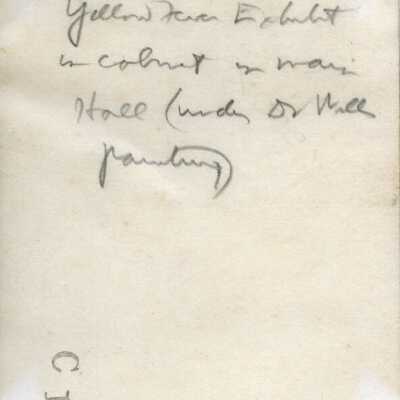 Yellow Fever Exhibit
in cabinet in main
Hall (under Dr Wells
painting)
C